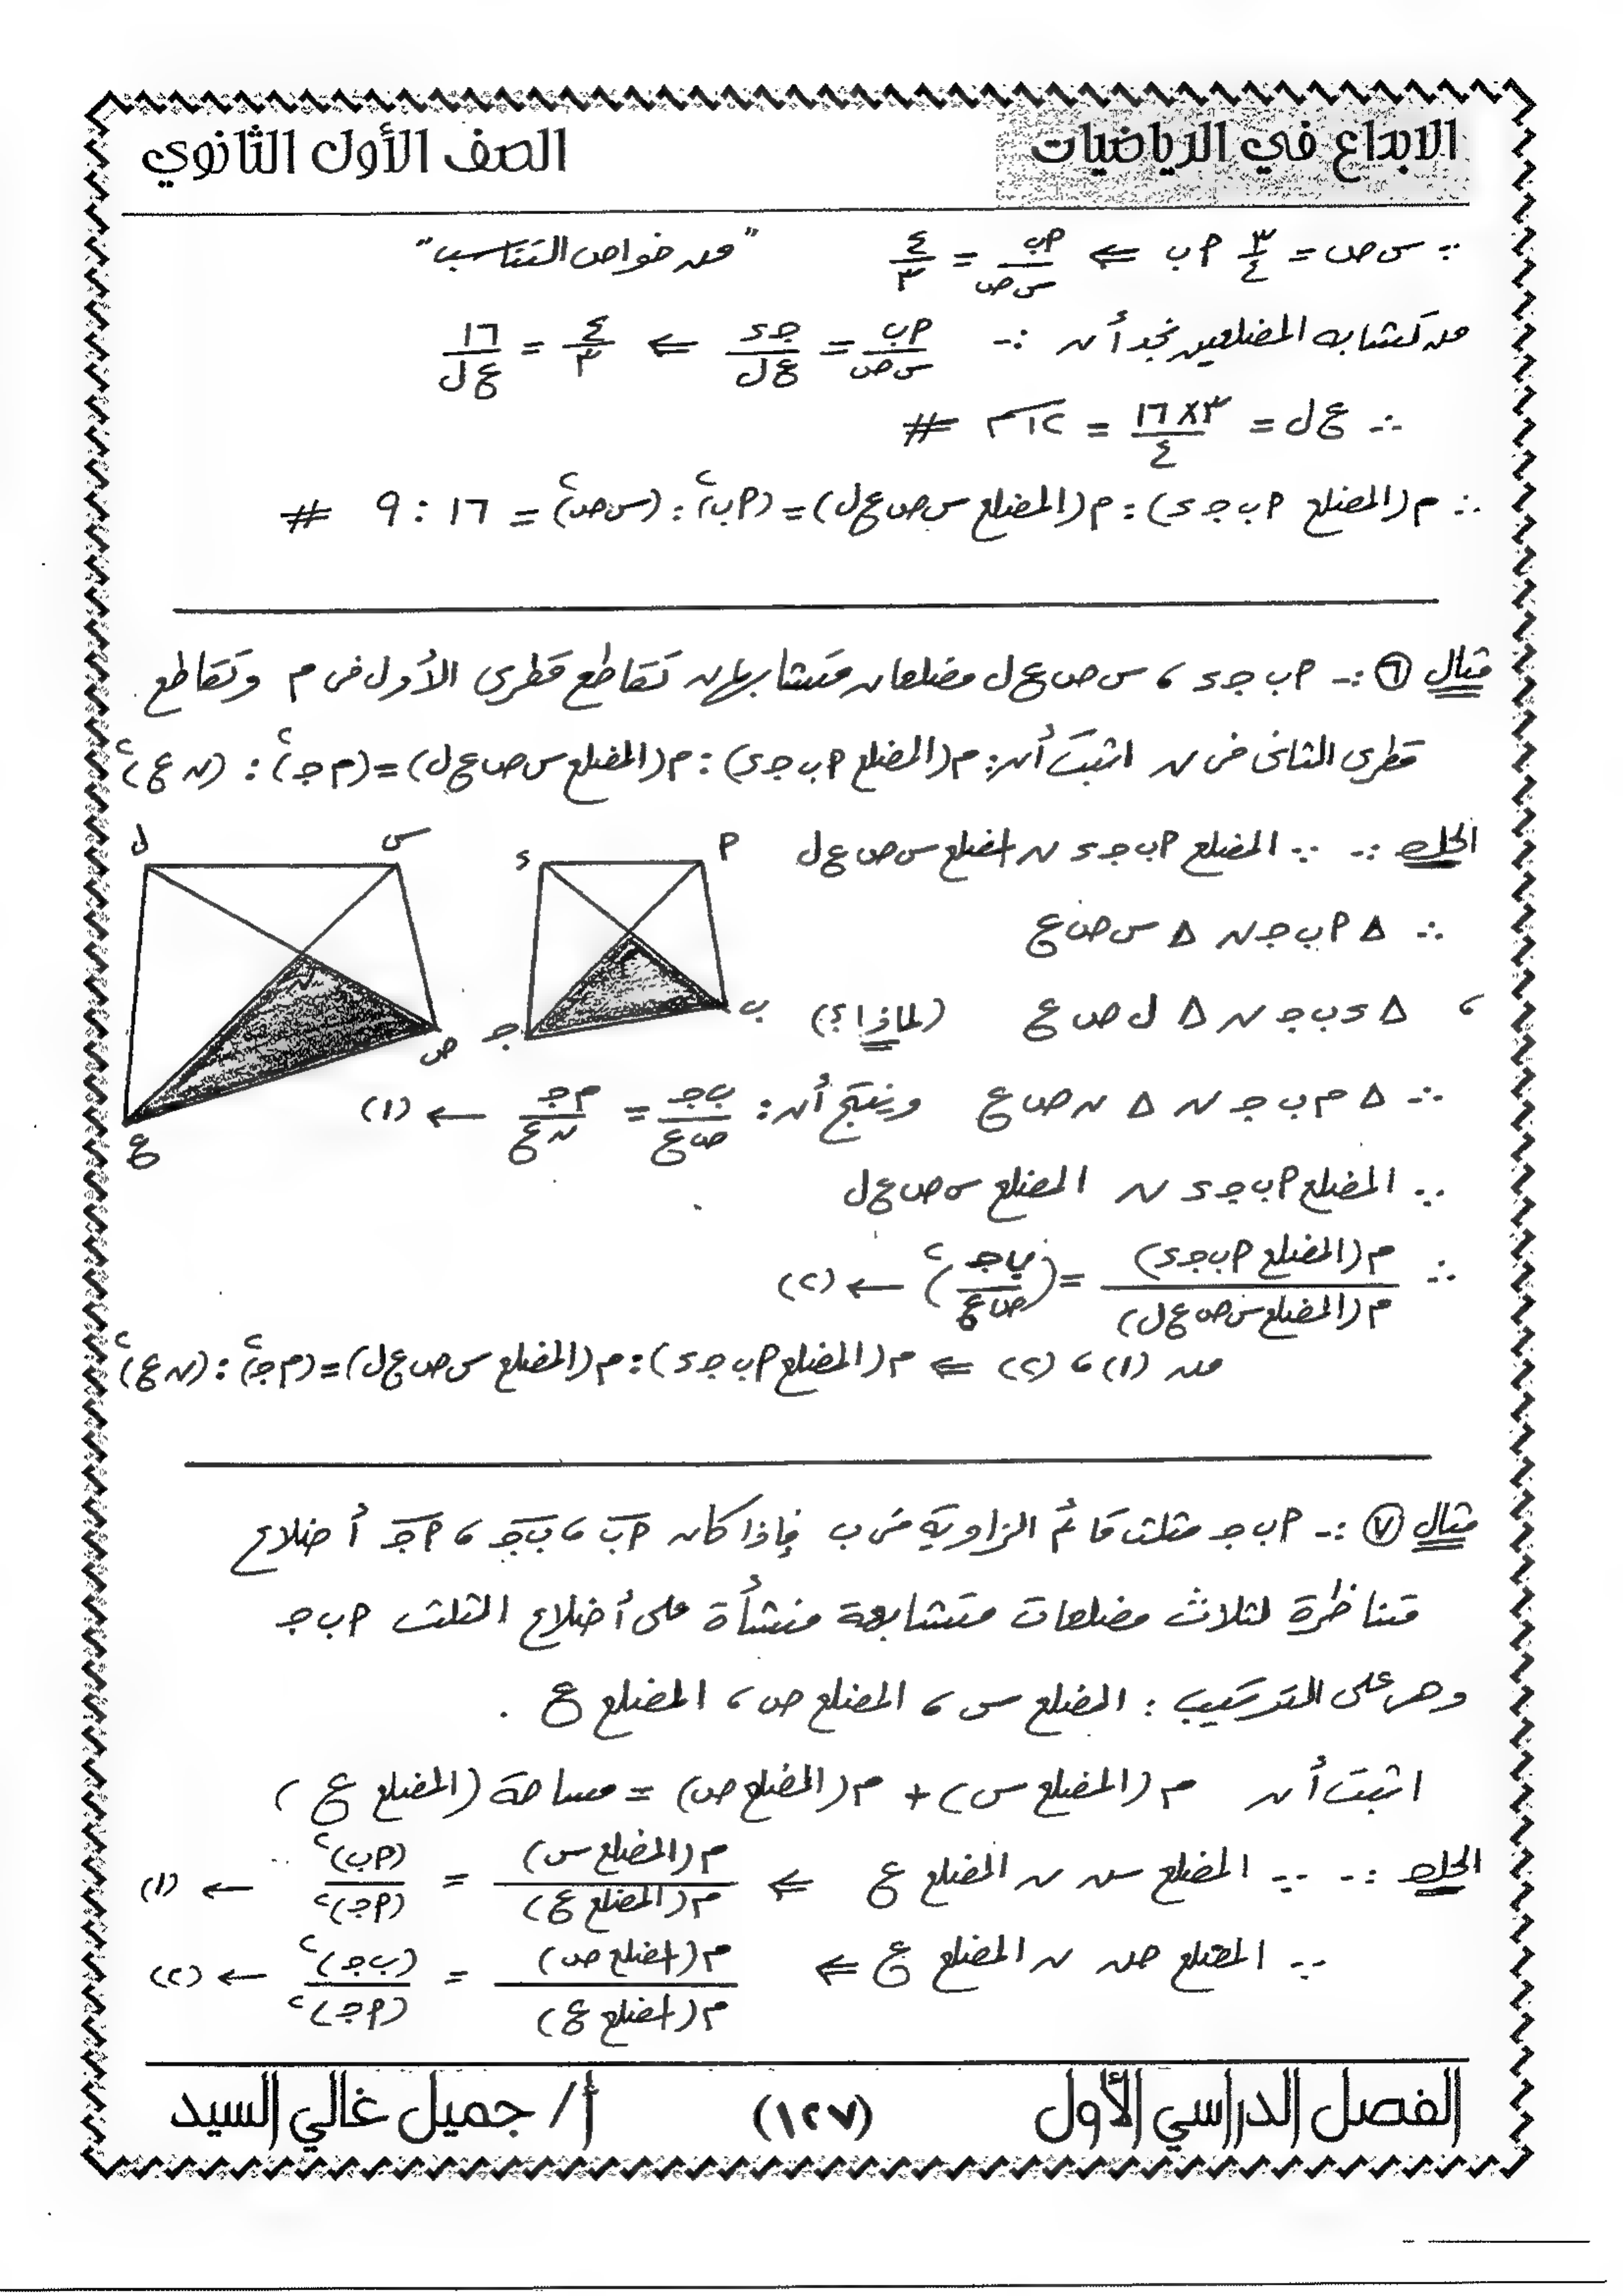 الابداع في الرياضيات
الصف الأول الثانوي
∵ س ص = ٣/٤ م ب ⇐ م ب / س ص = ٤/٣ "من خواص التناسب"
من تشابه المضلعين نجد أن :- م ب / س ص = جـ د / ع ل ⇐ ٤/٣ = ١٦ / ع ل
∴ ع ل = ٣×١٦ / ٤ = ١٢ سم #
∴ م (المضلع م ب جـ د) : م (المضلع س ص ع ل) = (م ب)٢ : (س ص)٢ = ١٦ : ٩ #
مثال ⑥ :- م ب جـ د ، س ص ع ل مضلعان متشابهان تقاطع قطرى الأول فى م وتقاطع
قطرى الثانى فى ن اثبت أن: م (المضلع م ب جـ د) : م (المضلع س ص ع ل) = (م جـ)٢ : (ن ع)٢
الحل :- ∵ المضلع م ب جـ د ~ المضلع س ص ع ل
∴ Δ م ب جـ ~ Δ س ص ع
، Δ د ب جـ ~ Δ ل ص ع (لماذا؟)
∴ Δ م ب جـ ~ Δ ن ص ع وينتج أن: ب جـ / ص ع = م جـ / ن ع ← (١)
∵ المضلع م ب جـ د ~ المضلع س ص ع ل
∴ م (المضلع م ب جـ د) / م (المضلع س ص ع ل) = (ب جـ / ص ع)٢ ← (٢)
من (١) ، (٢) ⇐ م (المضلع م ب جـ د) : م (المضلع س ص ع ل) = (م جـ)٢ : (ن ع)٢
م
د
ب
جـ
س
ل
ن
ص
ع
مثال ⑦ :- م ب جـ مثلث قائم الزاوية فى ب فإذا كان م ب ، ب جـ ، م جـ أضلاع
متناظرة لثلاث مضلعات متشابهة منشأة على أضلاع المثلث م ب جـ
وهى على الترتيب : المضلع س ، المضلع ص ، المضلع ع .
اثبت أن م (المضلع س) + م (المضلع ص) = مساحة (المضلع ع)
الحل :- ∵ المضلع س ~ المضلع ع ⇐ م (المضلع س) / م (المضلع ع) = (م ب)٢ / (م جـ)٢ ← (١)
∵ المضلع ص ~ المضلع ع ⇐ م (المضلع ص) / م (المضلع ع) = (ب جـ)٢ / (م جـ)٢ ← (٢)
الفصل الدراسي الأول
(١٢٧)
أ/ جميل غالي السيد